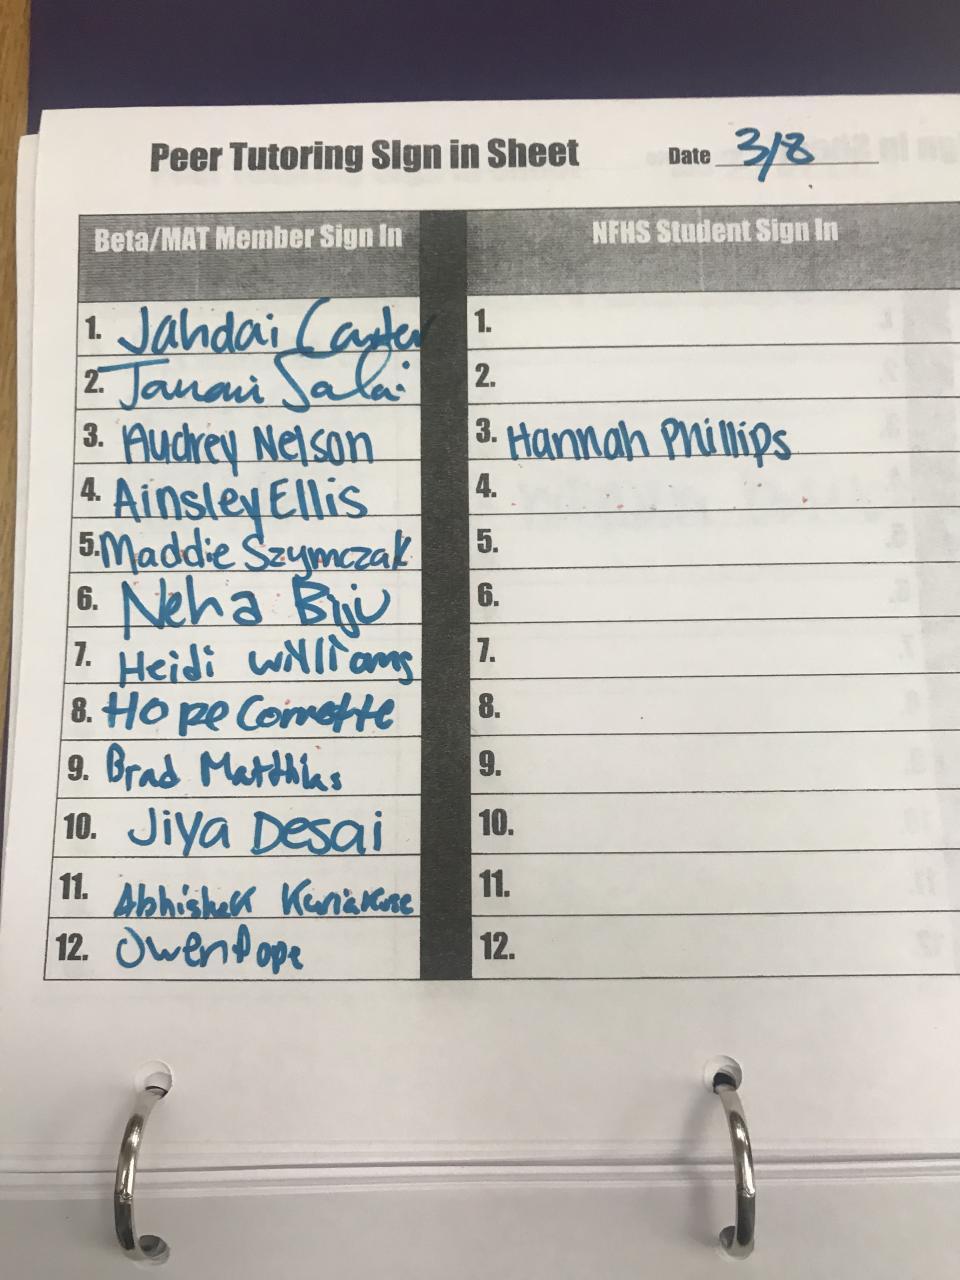 Peer Tutoring SIgn in Sheet Date 3/8
Beta/MAT Member Sign In NFHS Student Sign In
1. Jahdai Carter 1.
2. Janani Salai 2.
3. Audrey Nelson 3. Hannah Phillips
4. Ainsley Ellis 4.
5. Maddie Szymczak 5.
6. Neha Biju 6.
7. Heidi Williams 7.
8. Hope Cornette 8.
9. Brad Matthias 9.
10. Jiya Desai 10.
11. Abhishek Kuriakose 11.
12. Owen Pope 12.